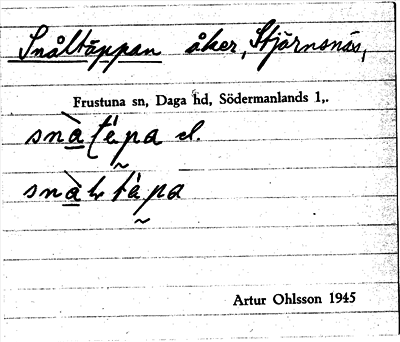 Snåltäppan åker, Stjärnsnäs,
Frustuna sn, Daga hd, Södermanlands l,.
el.
Artur Ohlsson 1945